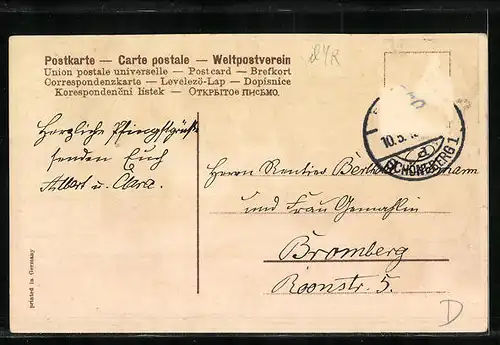 Postkarte — Carte postale — Weltpostverein
Union postale universelle — Postcard — Brefkort
Correspondenzkarte — Levelező-Lap — Dopisnice
Korespondenční listek — ОТКРЫТОЕ ПИСЬМО.
Herzliche Pfingstgrüße
senden Euch
Albert u. Clara.
Herrn Rentier
und Frau Gemahlin
Bromberg
Roonstr. 5.
10.5.
SCHÖNEBERG 1
printed in Germany
D